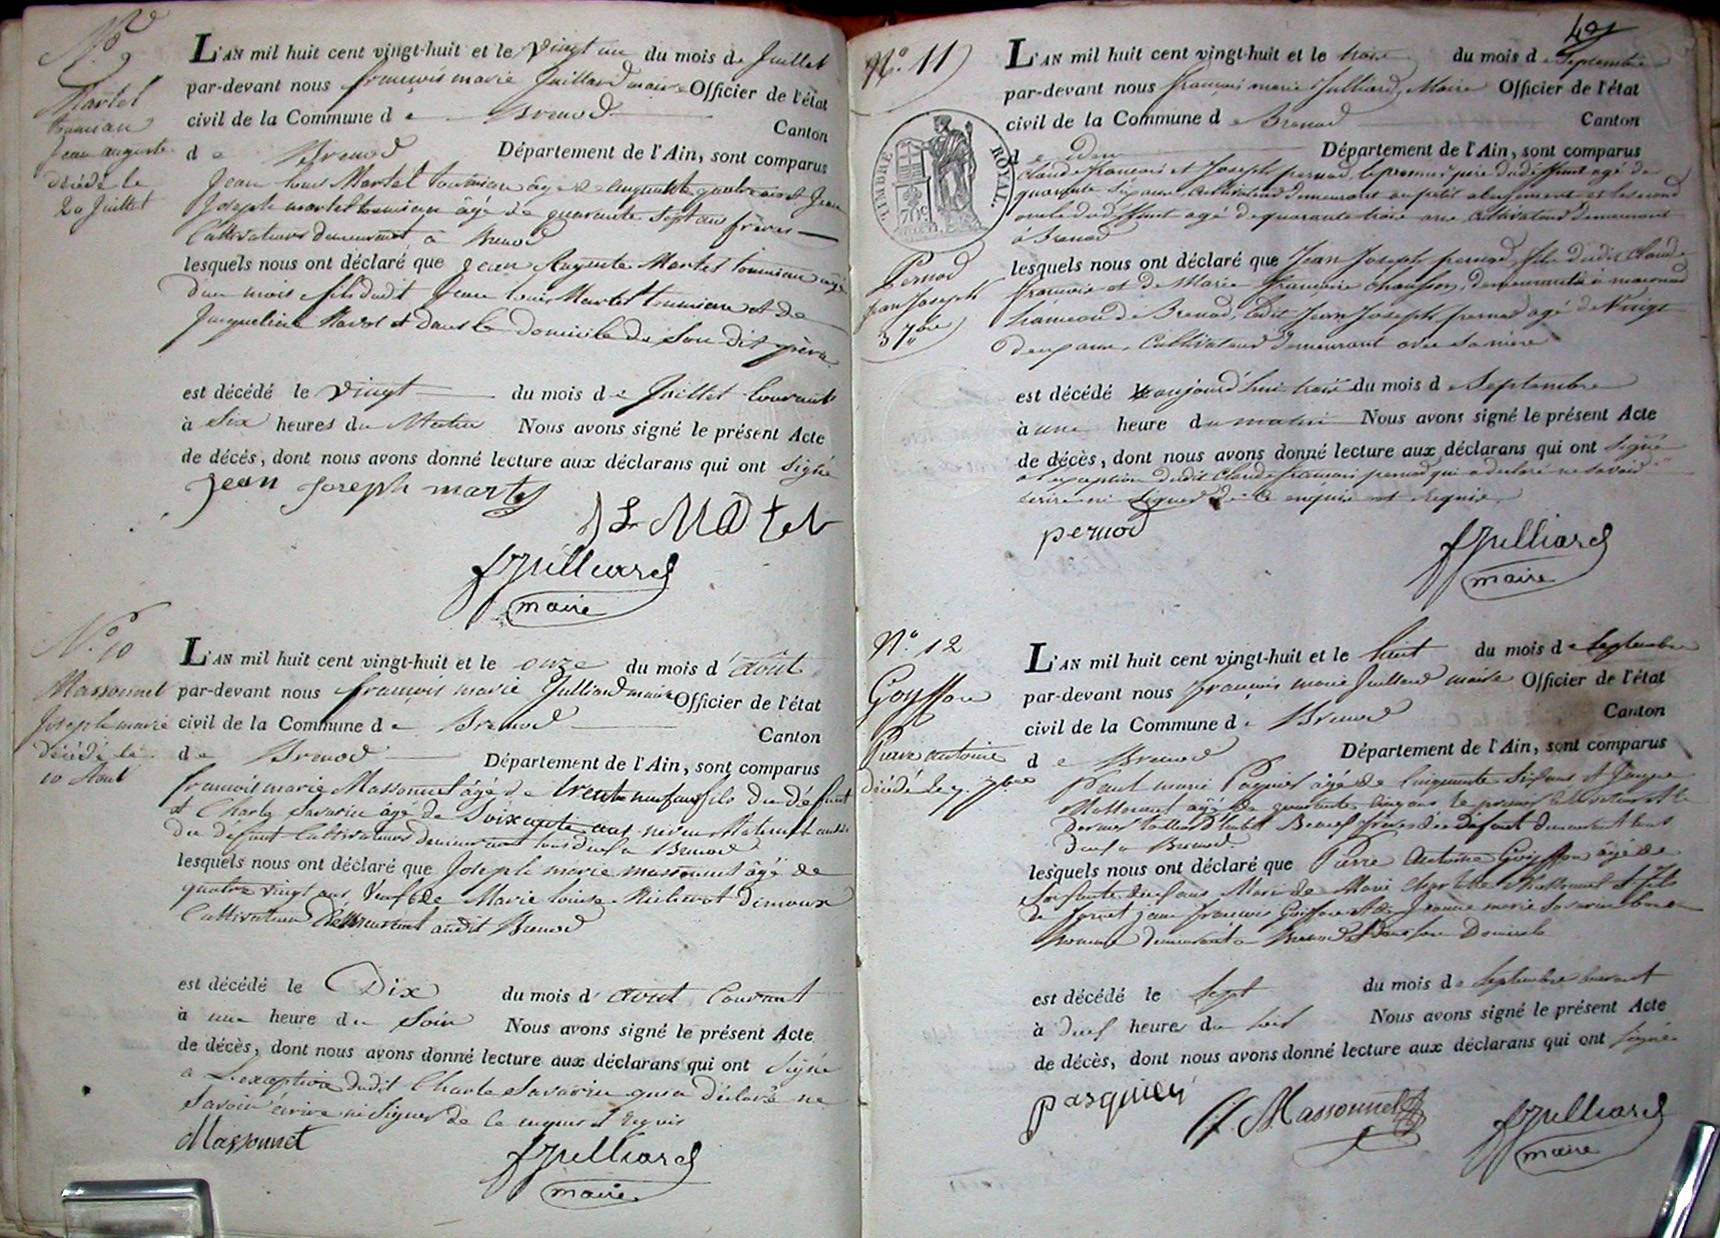 N.º 9
Martel
tournian
jean auguste
décédé le
20 Juillet
L'AN mil huit cent vingt-huit et le vingt un du mois de Juillet
par-devant nous françois marie Juilliard maire Officier de l'état
civil de la Commune de Brenod Canton
de Brenod Département de l'Ain, sont comparus
Jean louis Martel tournian âgé de cinquante quatre ans et Jean
Joseph martel tournian âgé de quarante sept ans frères
Cultivateurs demeurant à Brenod
lesquels nous ont déclaré que jean Auguste Martel tournian âgé
d'un mois fils dudit Jean louis Martel tournian et de
Jacqueline Ravot et dans le domicile de son dit père
est décédé le vingt du mois de Juillet Courant
à six heures du Matin Nous avons signé le présent Acte
de décès, dont nous avons donné lecture aux déclarans qui ont signé
jean joseph martel
JL Martel
fJuilliard
maire
N.º 10
Massonnet
Joseph marie
décédé le
10 Août
L'AN mil huit cent vingt-huit et le onze du mois d'août
par-devant nous françois marie Julliard maire Officier de l'état
civil de la Commune de Brenod Canton
de Brenod Département de l'Ain, sont comparus
francois marie Massonnet âgé de trente neuf ans fils du défunt
et Charles Savarin âgé de Soixante ans neveu Maternel aussi
du defunt Cultivateurs demeurant tous deux a Brenod
lesquels nous ont déclaré que Joseph marie massonnet âgé de
quatre vingt ans Veuf de Marie louise
Cultivateur demeurant audit Brenod
est décédé le Dix du mois d'août Courant
à une heure du Soir Nous avons signé le présent Acte
de décès, dont nous avons donné lecture aux déclarans qui ont signé
a L'exception dudit Charle Savarin qui a déclaré ne
savoir écrire ni signer de ce enquis et requis
Massonnet
fJuilliard
maire
N.º 11
TIMBRE ROYAL
70c
Pernod
jean Joseph
3 7bre
L'AN mil huit cent vingt-huit et le trois du mois de Septembre
par-devant nous françois marie Julliard, Maire Officier de l'état
civil de la Commune de Brenod Canton
de idem Département de l'Ain, sont comparus
Claude françois et Joseph pernod, le premier père du deffunt agé de
quarante six ans, Cultivateur demeurant au petit abergement et le second
oncle du deffunt agé de quarante trois ans Cultivateur demeurant
à Brenod
lesquels nous ont déclaré que Jean Joseph pernod, fils dudit Claude
françois et de Marie françoise Chanson, demeurante à
hameau de Brenod, ledit Jean Joseph pernod agé de Vingt
deux ans, Cultivateur demeurant avec sa mère
est décédé le aujourd'hui trois du mois de Septembre
à une heure du matin Nous avons signé le présent Acte
de décès, dont nous avons donné lecture aux déclarans qui ont signé
a l'exception dudit Claude françois pernod qui a declaré ne savoir
écrire ni signer de ce enquis et requis
pernod
fJuilliard
maire
N.º 12
Goyffon
Pierre antoine
décédé le 7 7bre
L'AN mil huit cent vingt-huit et le huit du mois de Septembre
par-devant nous françois marie Juilliard maire Officier de l'état
civil de la Commune de Brenod Canton
de Brenod Département de l'Ain, sont comparus
Paul marie Paquier âgé de Cinquante Six ans et Jacques
Massonnet âgé de quarante Cinq ans le premier Cultivateur et le
dernier tailleur d'habit Beaux frères du défunt demeurant tous
deux a Brenod
lesquels nous ont déclaré que Pierre Antoine Goyffon âgé de
Soixante deux ans Mari de Marie Charlotte Massonnet et fils
de Jean francois Goiffon et de Jeanne marie Savarin
demeurant a Brenod et dans son Domicile
est décédé le Sept du mois de Septembre Courant
à deux heures du soir Nous avons signé le présent Acte
de décès, dont nous avons donné lecture aux déclarans qui ont signé
pasquier
J Massonnet
fJuilliard
maire